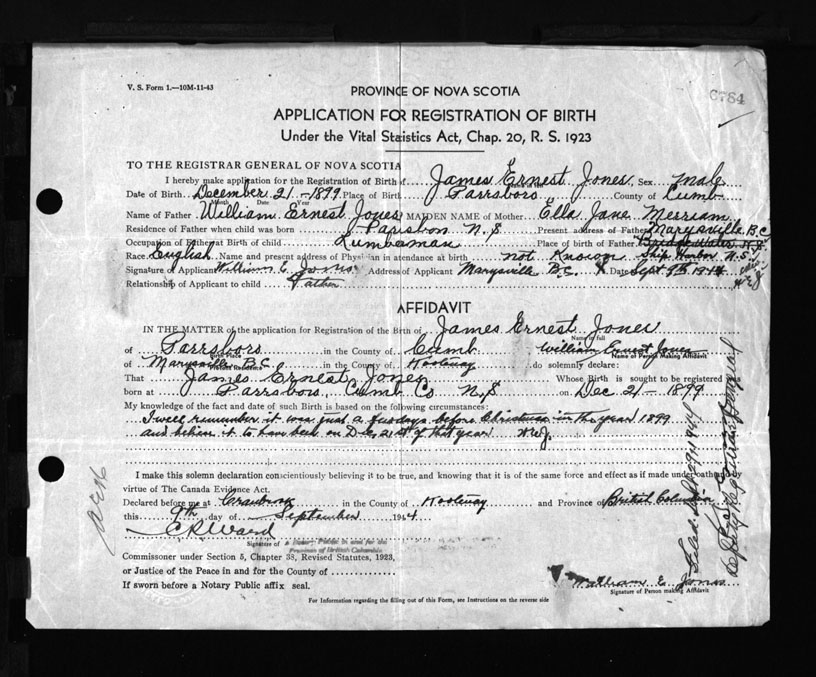 V. S. Form 1.—10M-11-43
PROVINCE OF NOVA SCOTIA
6784
APPLICATION FOR REGISTRATION OF BIRTH
Under the Vital Statistics Act, Chap. 20, R. S. 1923
TO THE REGISTRAR GENERAL OF NOVA SCOTIA
I hereby make application for the Registration of Birth of James Ernest Jones, Sex Male
Date of Birth December 21 - 1899 Place of Birth Parrsboro County of Cumb
Month Date Year
Name of Father William Ernest Jones MAIDEN NAME of Mother Ella Jane Merriam
Residence of Father when child was born Parrsboro N.S Present address of Father Marysville B.C
Occupation of Father at Birth of child Lumberman Place of birth of Father Bridgewater N.S. Ship Harbor N.S.
Race English Name and present address of Physician in attendance at birth not Known
Signature of Applicant William E. Jones Address of Applicant Marysville B.C. Date Sept 9th 1944
Relationship of Applicant to child Father
AFFIDAVIT
IN THE MATTER of the application for Registration of the Birth of James Ernest Jones
Name in full
of Parrsboro in the County of Cumb William Ernest Jones
Name of Person Making Affidavit
of Marysville B.C. in the County of Kootenay do solemnly declare:
Present Residence
That James Ernest Jones Whose Birth is sought to be registered was
born at Parrsboro Cumb Co N.S on Dec 21 - 1899
My knowledge of the fact and date of such Birth is based on the following circumstances:
I well remember it was just a few days before Christmas in the year 1899
and believe it to have been on Dec. 21st of that year W.E.J.
I make this solemn declaration conscientiously believing it to be true, and knowing that it is of the same force and effect as if made under oath and by
virtue of The Canada Evidence Act.
Declared before me at Cranbrook in the County of Kootenay and Province of British Columbia
this 9th day of September 1944
C R Ward
Signature of a Notary Public in and for the
Province of British Columbia
Commissioner under Section 5, Chapter 38, Revised Statutes, 1923,
or Justice of the Peace in and for the County of
If sworn before a Notary Public affix seal.
William E. Jones
Signature of Person making Affidavit
For Information regarding the filling out of this Form, see Instructions on the reverse side